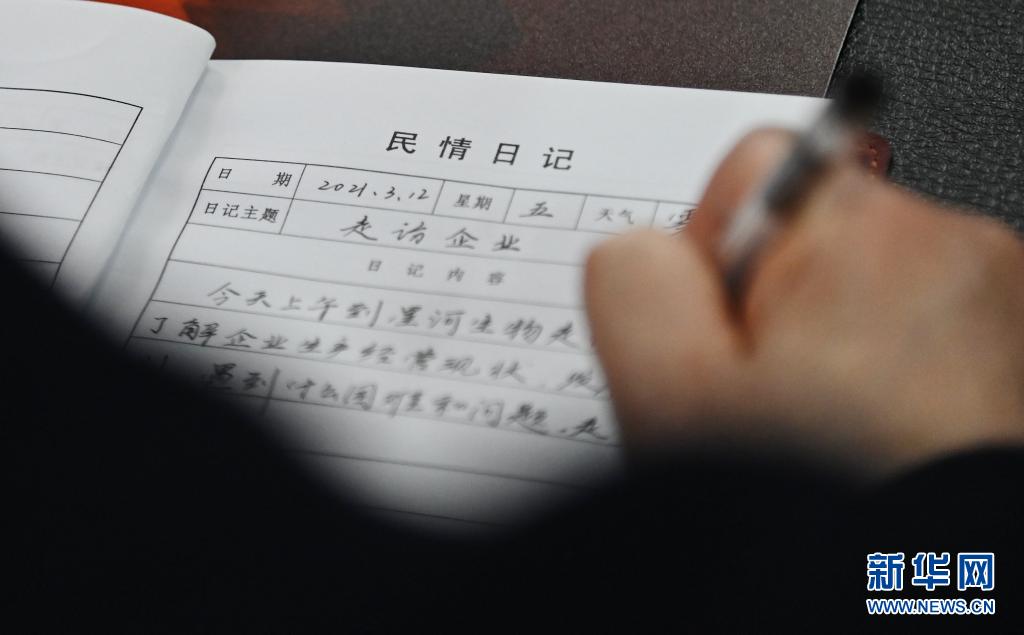 民情日记
日 期 2021.3.12 星期 五 天气
日记主题 走访企业
日 记 内 容
今天上午到星河生物走
了解企业生产经营现状,
遇到什么困难和问题,走
新华网
WWW.NEWS.CN